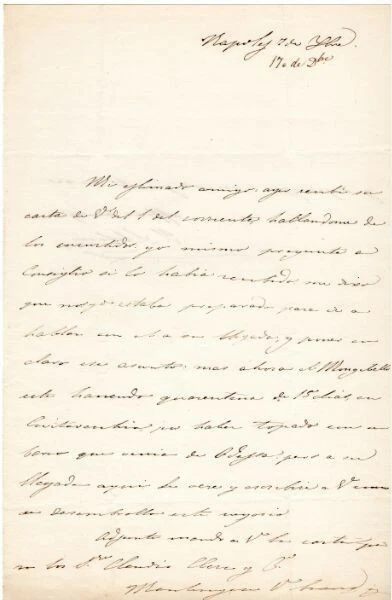 Napoles 7 de Xbre.
17 de Dbre
Mi estimado amigo: ayer recibi su
carta de Vd. del 1º del corriente, hablandome de
los encurtidos, yo mismo pregunté a
Consiglio si lo había recibido me dijo
que no, yo estaba preparado para ir a
hablar con el a su llegada, y poner en
claro ese asunto; mas ahora el Mongibello
está haciendo quarentina de 15 dias en
Civitavechia por haber topado con un
barco que venia de Odessa; pero a su
llegada aqui le vere y escribiré a Vd. como
se desembolla este negocio
Adjunto mando a Vd. la carta para
los Sres. Claudio Clerc y Ca.